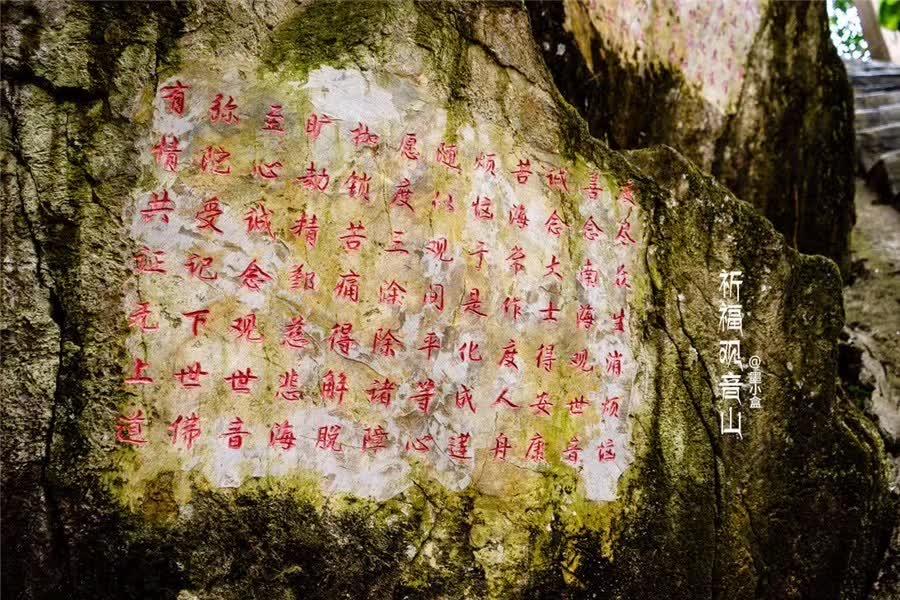 度尽众生消烦恼
善念南海观世音
诚念大士得安康
苦海常作度人舟
烦恼于是化成莲
随以观平等心
愿度三涂除诸障
枷锁苦痛得解脱
旷劫精慈悲海
至心诚念观世音
弥陀受记下世佛
有情共证无上道
祈福观音山